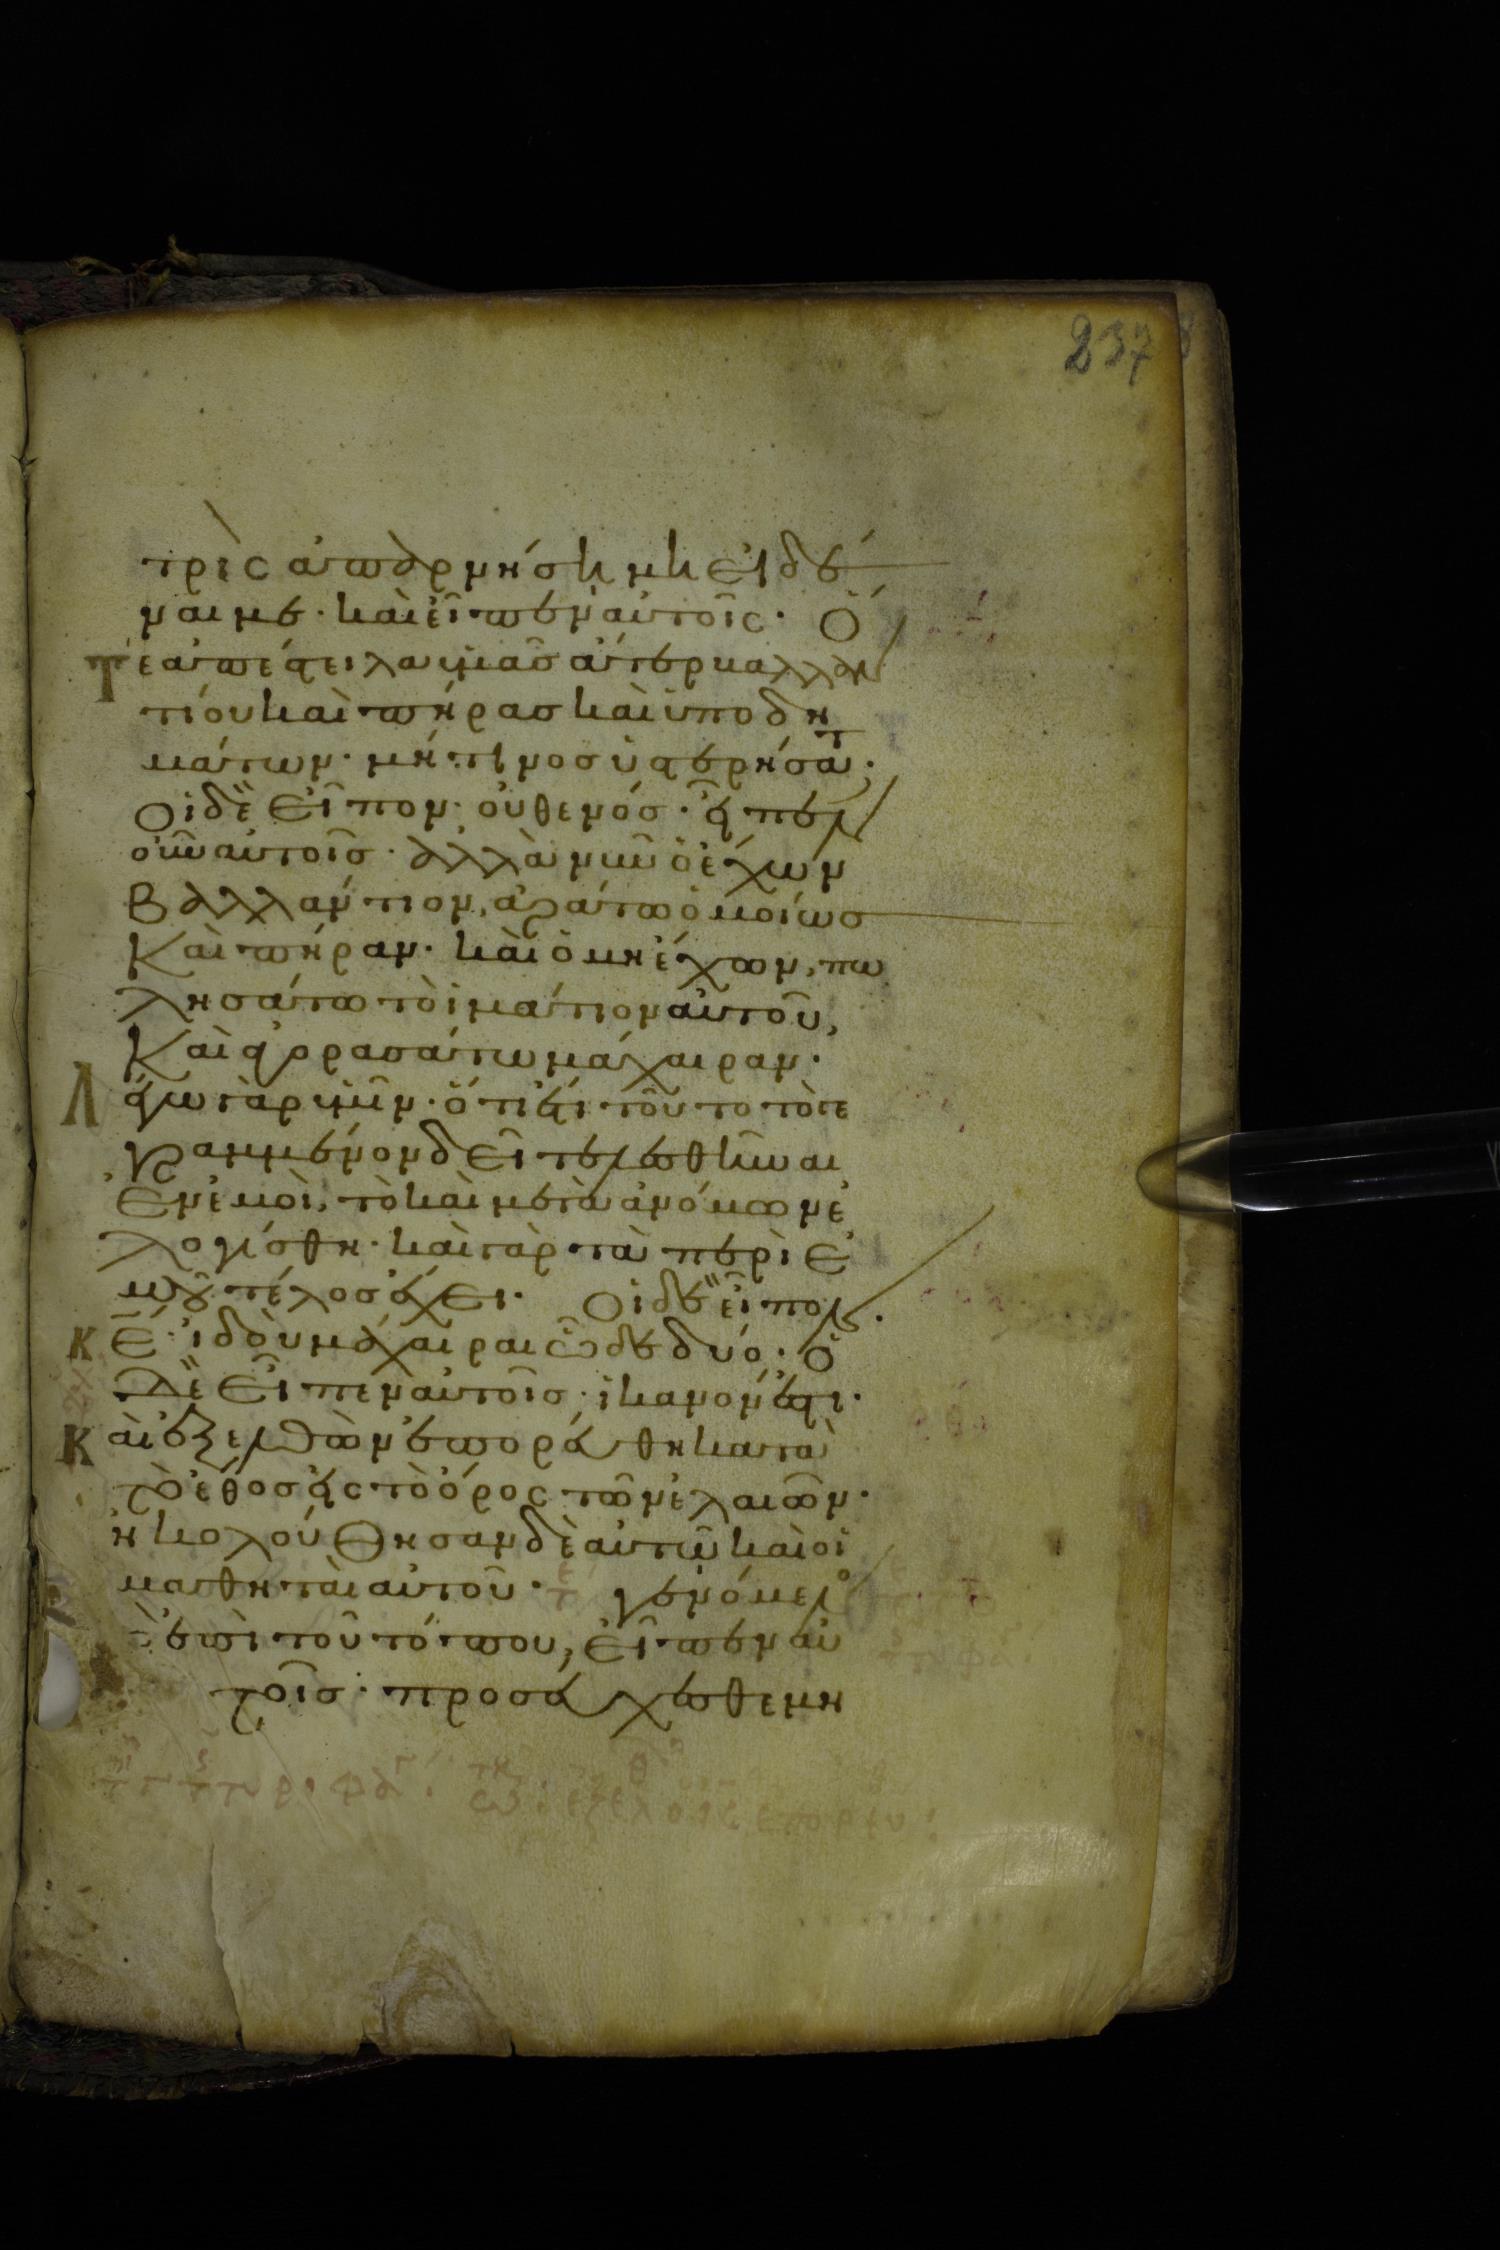 237
τρὶς ἀπαρνήση μὴ εἰδέ
ναι με· καὶ εἶπεν αὐτοῖς· Ὅ
τε ἀπέστειλα ὑμᾶσ ἄτερ βαλλαν
τίου καὶ πήρασ καὶ ὑποδη
μάτων· μή τινοσ ὑστερήσατε·
οἱ δὲ εἶπον· οὐθενόσ· εἶπεν
οὖν αὐτοῖσ· ἀλλὰ νῦν ὁ ἔχων
βαλλάντιον, ἀράτω ὁμοίωσ
Καὶ πήραν· καὶ ὁ μὴ ἔχων, πω
λησάτω τὸ ἱμάτιον αὐτοῦ,
Καὶ ἀγορασάτω μάχαιραν·
Λέγω γὰρ ὑμῖν· ὅτι ἔτι τοῦτο τὸ γε
γραμμένον δεῖ τελεσθῆναι
ἐν ἐμοὶ, τὸ καὶ μετὰ ἀνόμων ἐ
λογίσθη· καὶ γὰρ τὰ περὶ ἐ
μοῦ τέλοσ ἔχει· Οἱ δὲ εἶπον·
κε· ἰδοὺ μάχαιραι ὧδε δύο· ὁ
δὲ εἶπεν αὐτοῖσ· ἱκανόν ἐστι·
Καὶ ἐξελθὼν ἐπορεύθη κατὰ
τὸ ἔθοσ εἰς τὸ ὄρος τῶν ἐλαιῶν·
ἠκολούθησαν δὲ αὐτῶ καὶ οἱ
μαθηταὶ αὐτοῦ· γενόμενος
δὲ ἐπὶ τοῦ τόπου, εἶπεν αὐ
τοῖσ· προσεύχεσθε μὴ